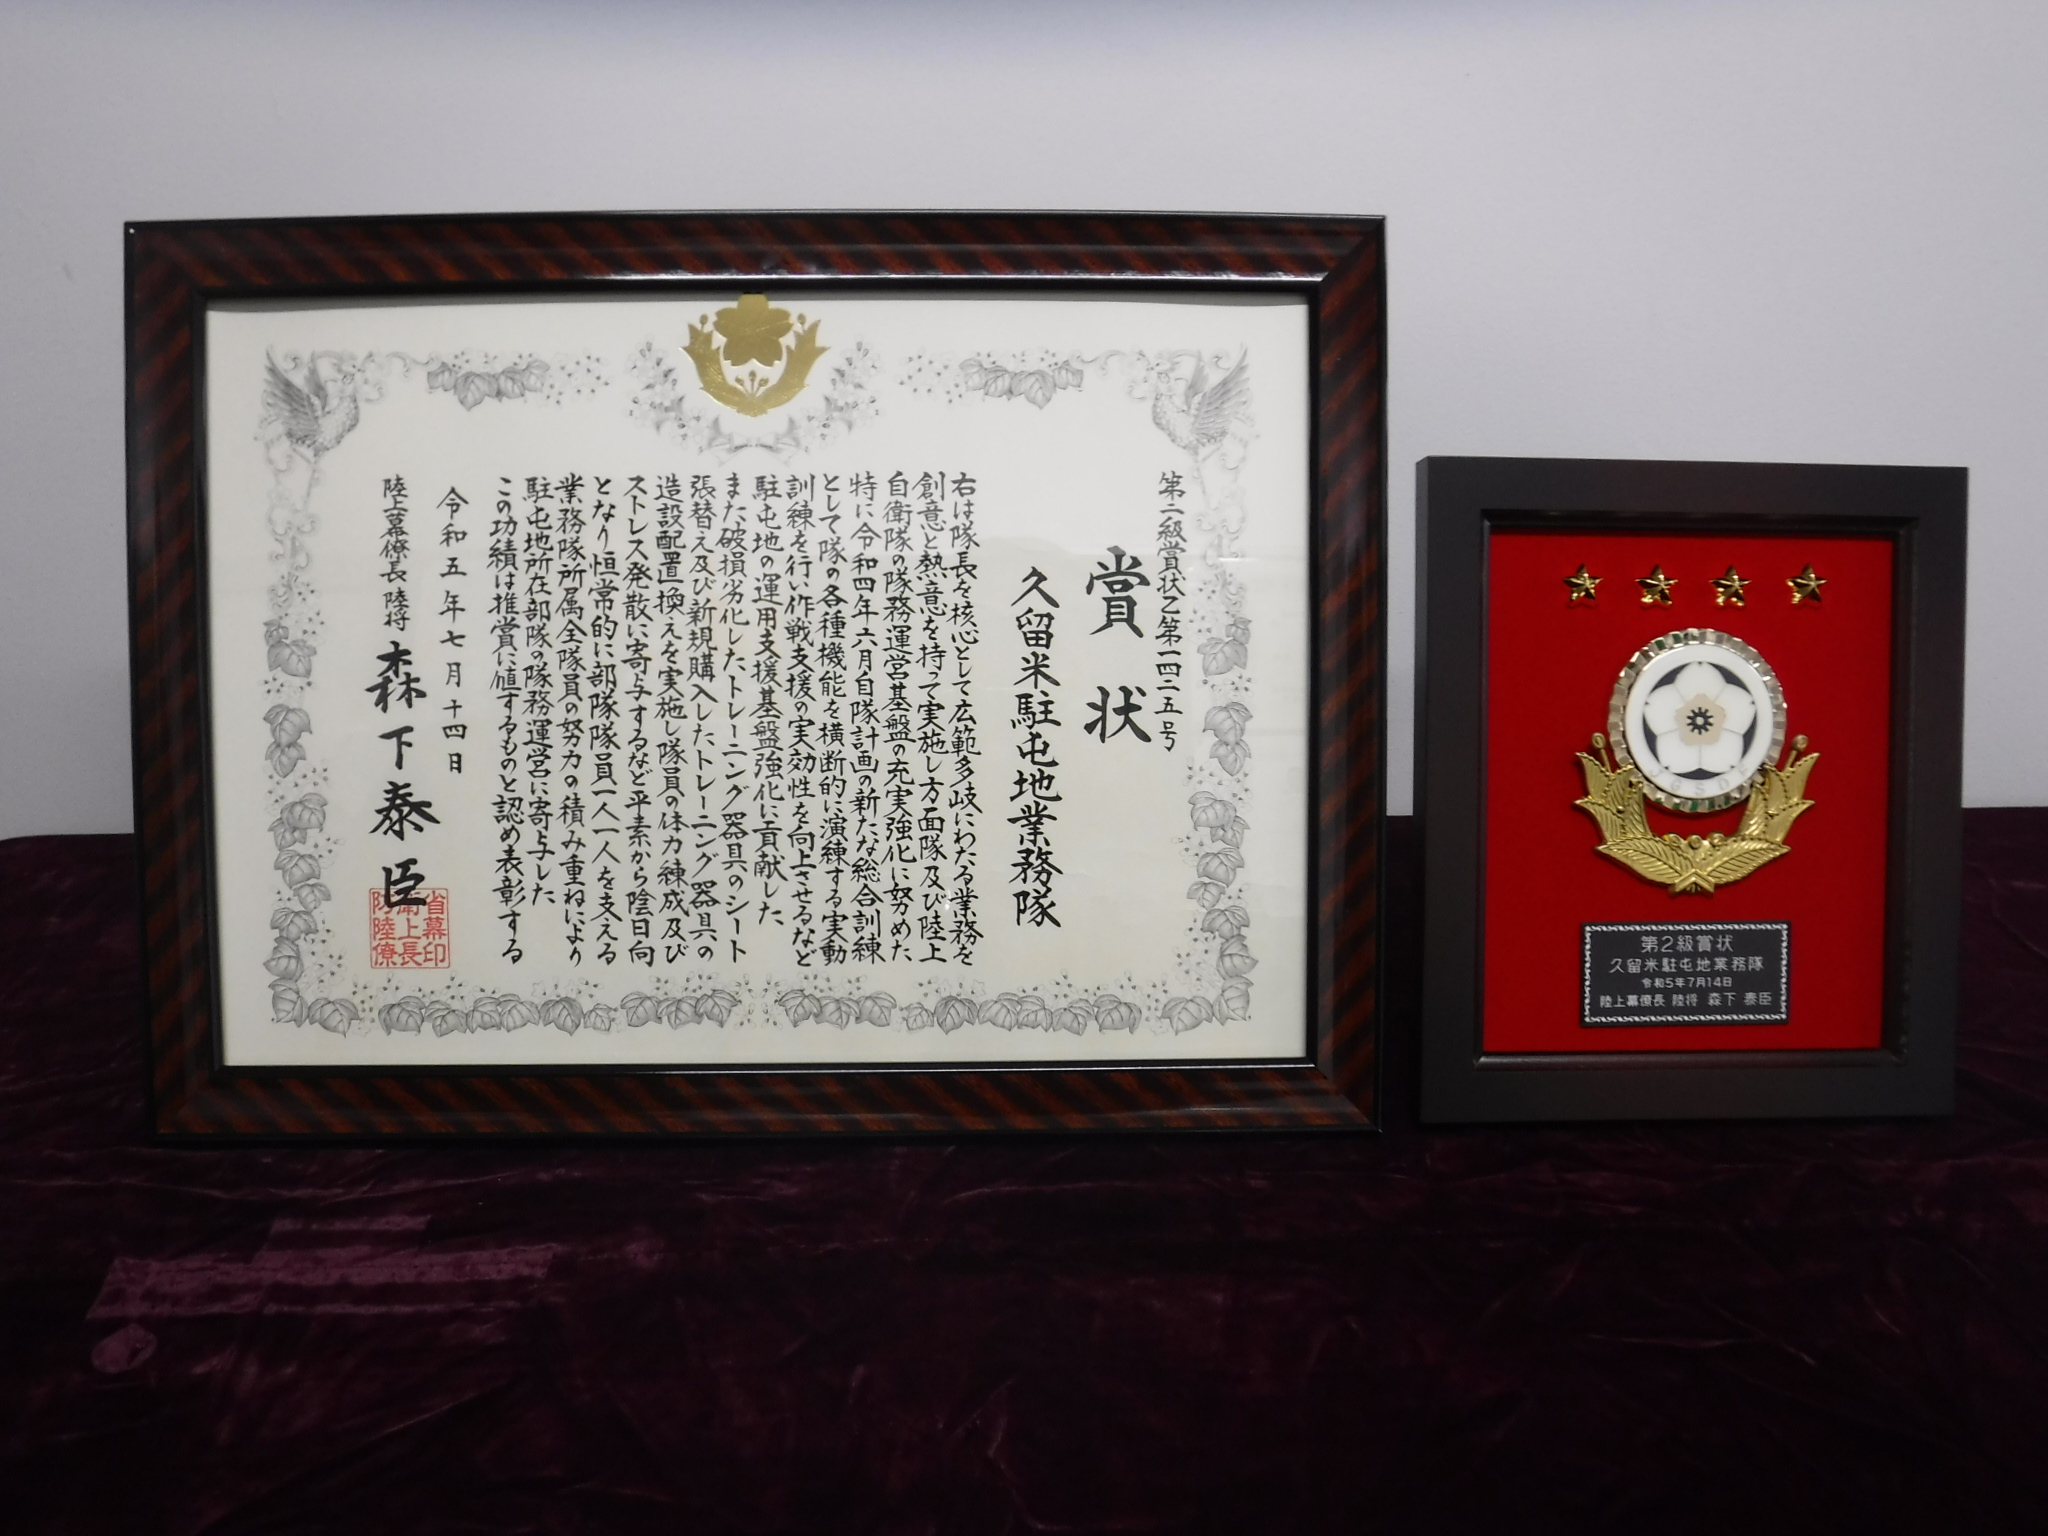 第二級賞状乙第一四二五号
賞状
久留米駐屯地業務隊
右は隊長を核心として広範多岐にわたる業務を
創意と熱意を持って実施し方面隊及び陸上
自衛隊の隊務運営基盤の充実強化に努めた
特に令和四年六月自隊計画の新たな総合訓練
として隊の各種機能を横断的に演練する実動
訓練を行い作戦支援の実効性を向上させるなど
駐屯地の運用支援基盤強化に貢献した
また破損劣化したトレーニング器具のシート
張替え及び新規購入したトレーニング器具の
造設配置換えを実施し隊員の体力練成及び
ストレス発散に寄与するなど平素から陰日向
となり恒常的に部隊隊員一人一人を支える
業務隊所属全隊員の努力の積み重ねにより
駐屯地所在部隊の隊務運営に寄与した
この功績は推賞に値するものと認め表彰する
令和五年七月十四日
陸上幕僚長 陸将 森下泰臣
省幕印
衛上長
防陸僚
JGSDF
第2級賞状
久留米駐屯地業務隊
令和5年7月14日
陸上幕僚長 陸将 森下 泰臣